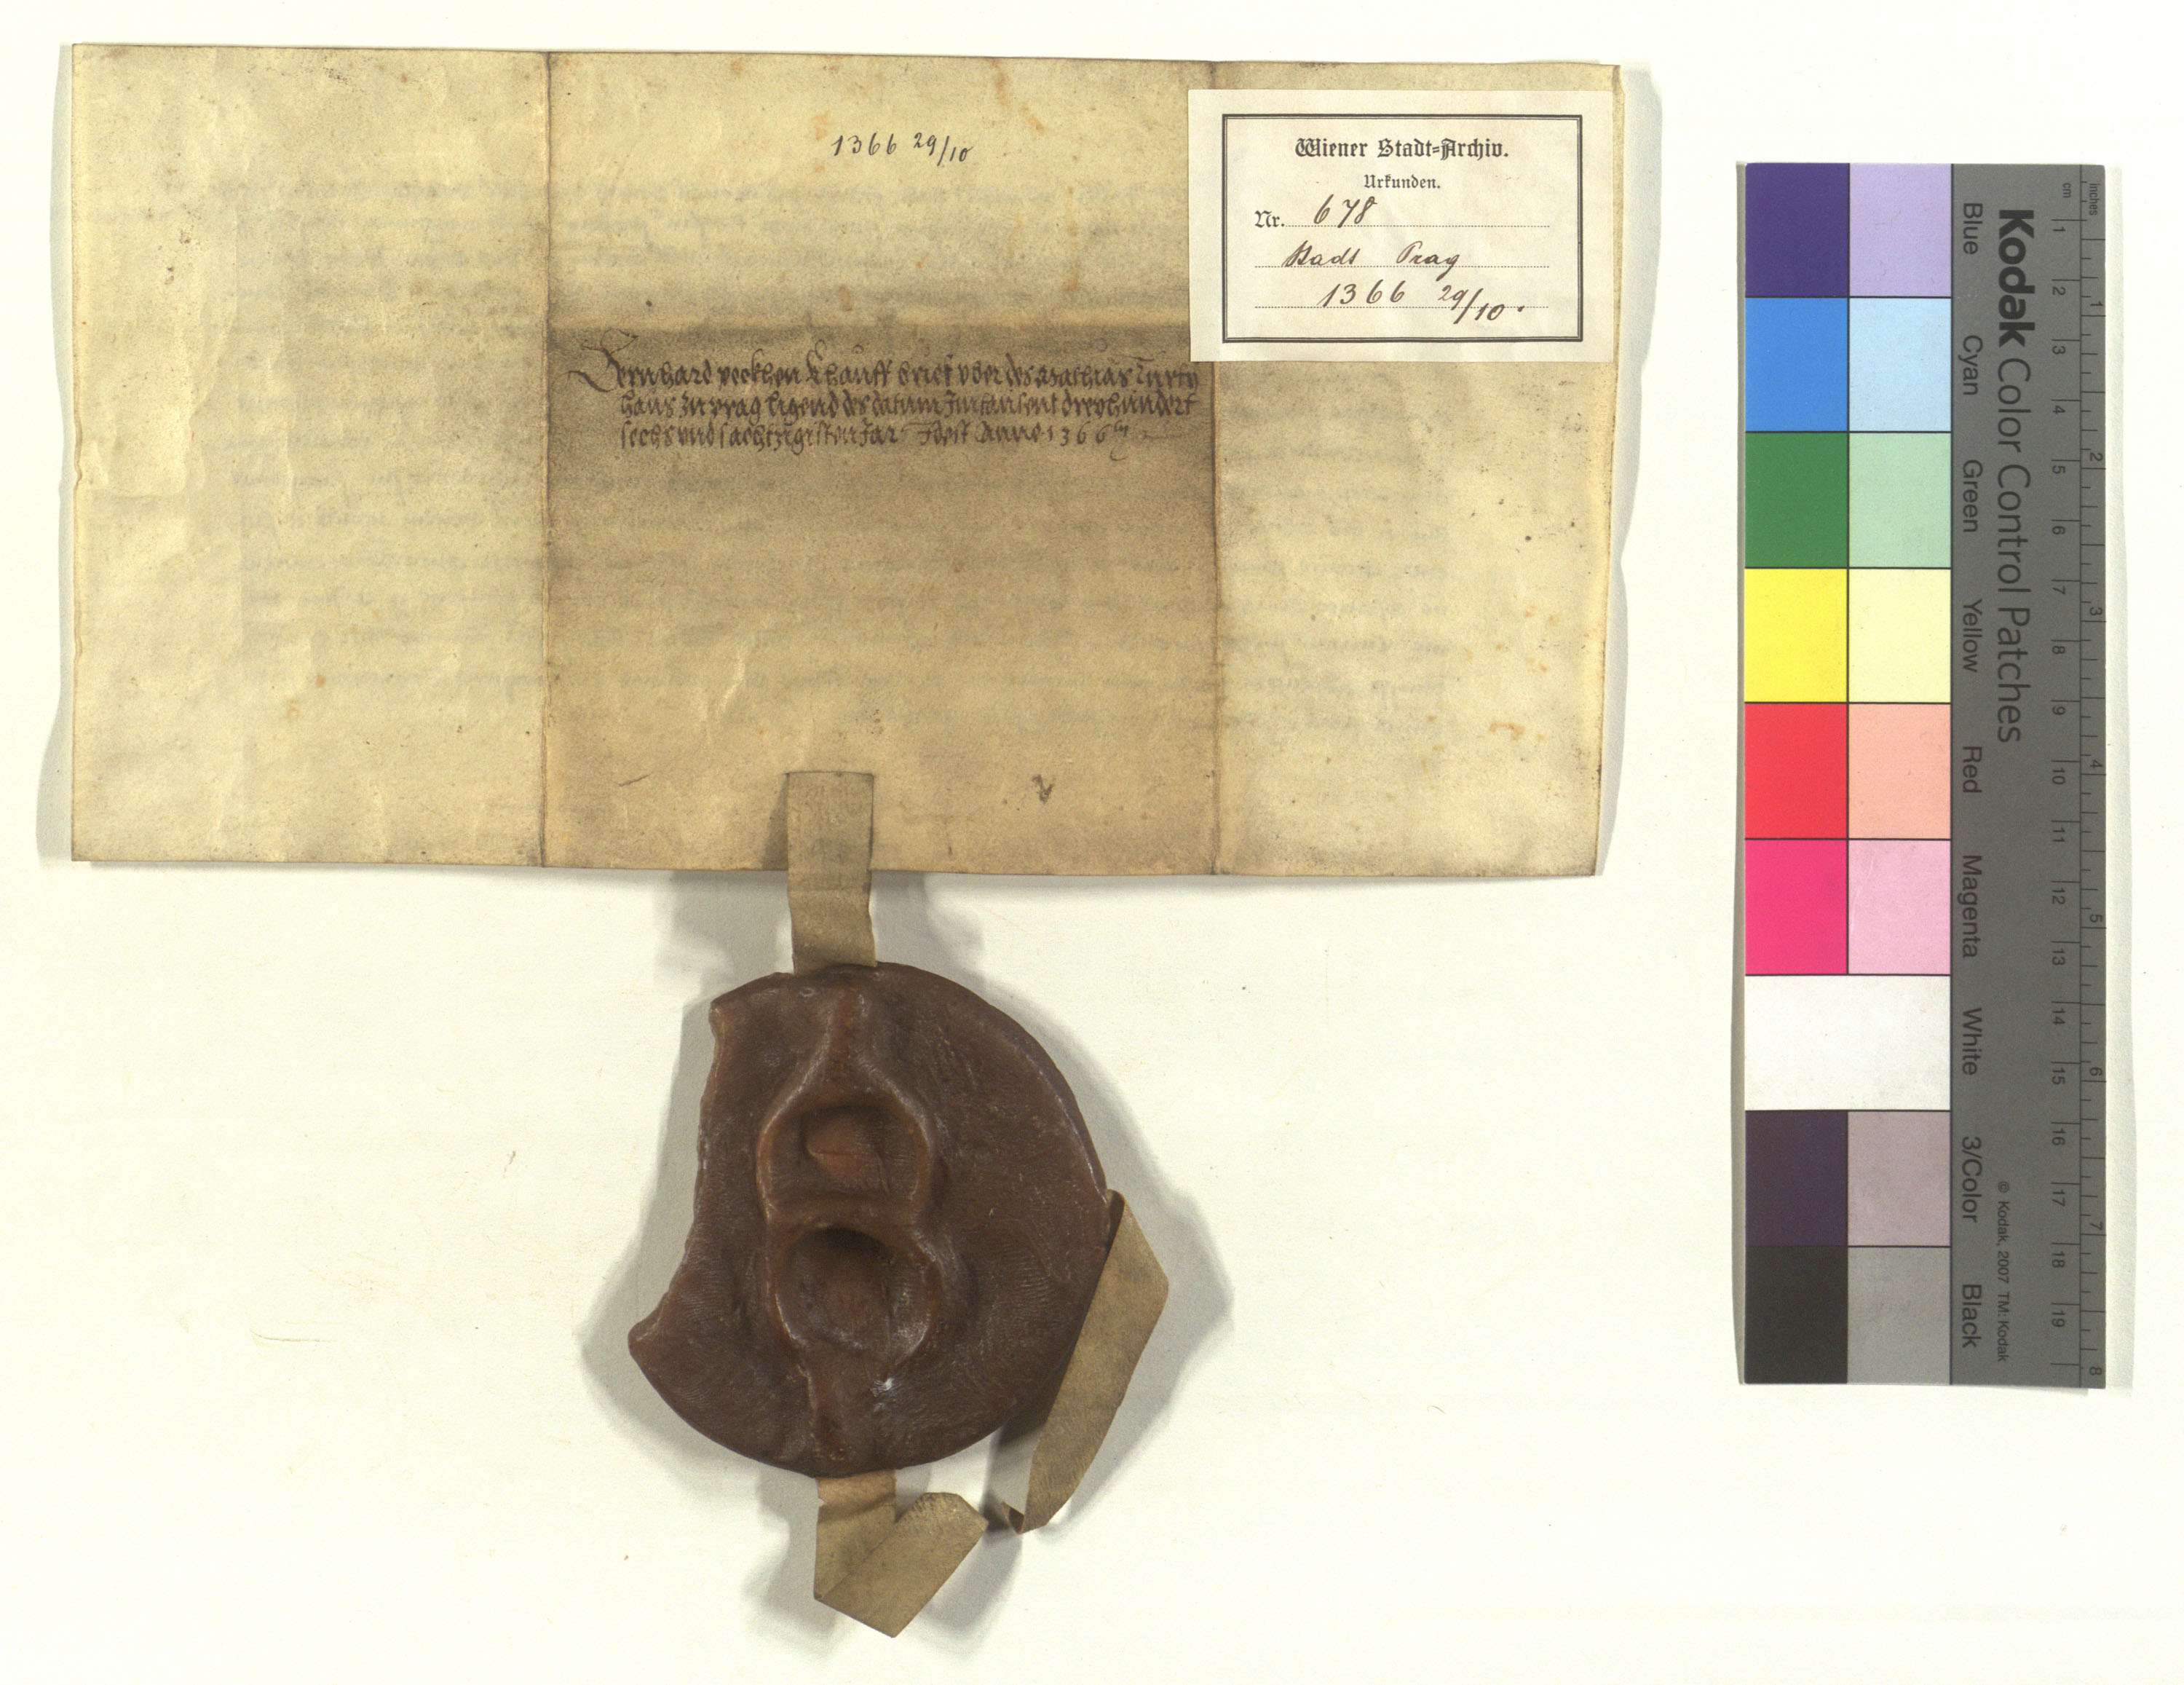 1366 29/10
Wiener Stadt-Archiv.
Urkunden.
Nr. 678
Stadt Prag
1366 29/10.
Bernhard peckhen Khauff brief vber des Mathias Turtz
haus zu prag ligend des datum Im tausent dreyhundert
sechs vnd sachtzigisten Jar Idest Anno 1366
Kodak Color Control Patches
Blue Cyan Green Yellow Red Magenta White 3/Color Black
© Kodak, 2007 TM: Kodak
cm 1 2 3 4 5 6 7 8 9 10 11 12 13 14 15 16 17 18 19
inches 1 2 3 4 5 6 7 8